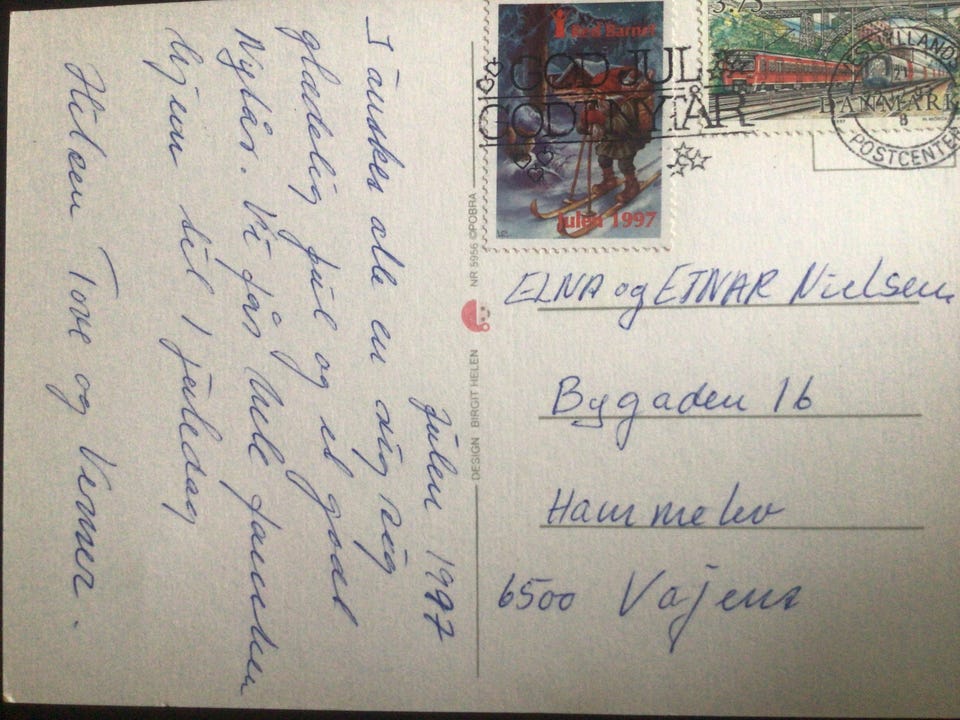 Julen 1997
I ønskes alle en rigtig
glædelig jul og et godt
Nytår. Vi får hele familien
hjem til 1 juledag
Hilsen Tove og Verner.
DESIGN BIRGIT HELEN NR 5956 ©POBRA
Red Barnet
Julen 1997
GOD JUL
GODT NYTÅR
3.75
DANMARK
POSTCENTER
ELNA og EINAR Nielsen
Bygaden 16
Hammelev
6500 Vojens